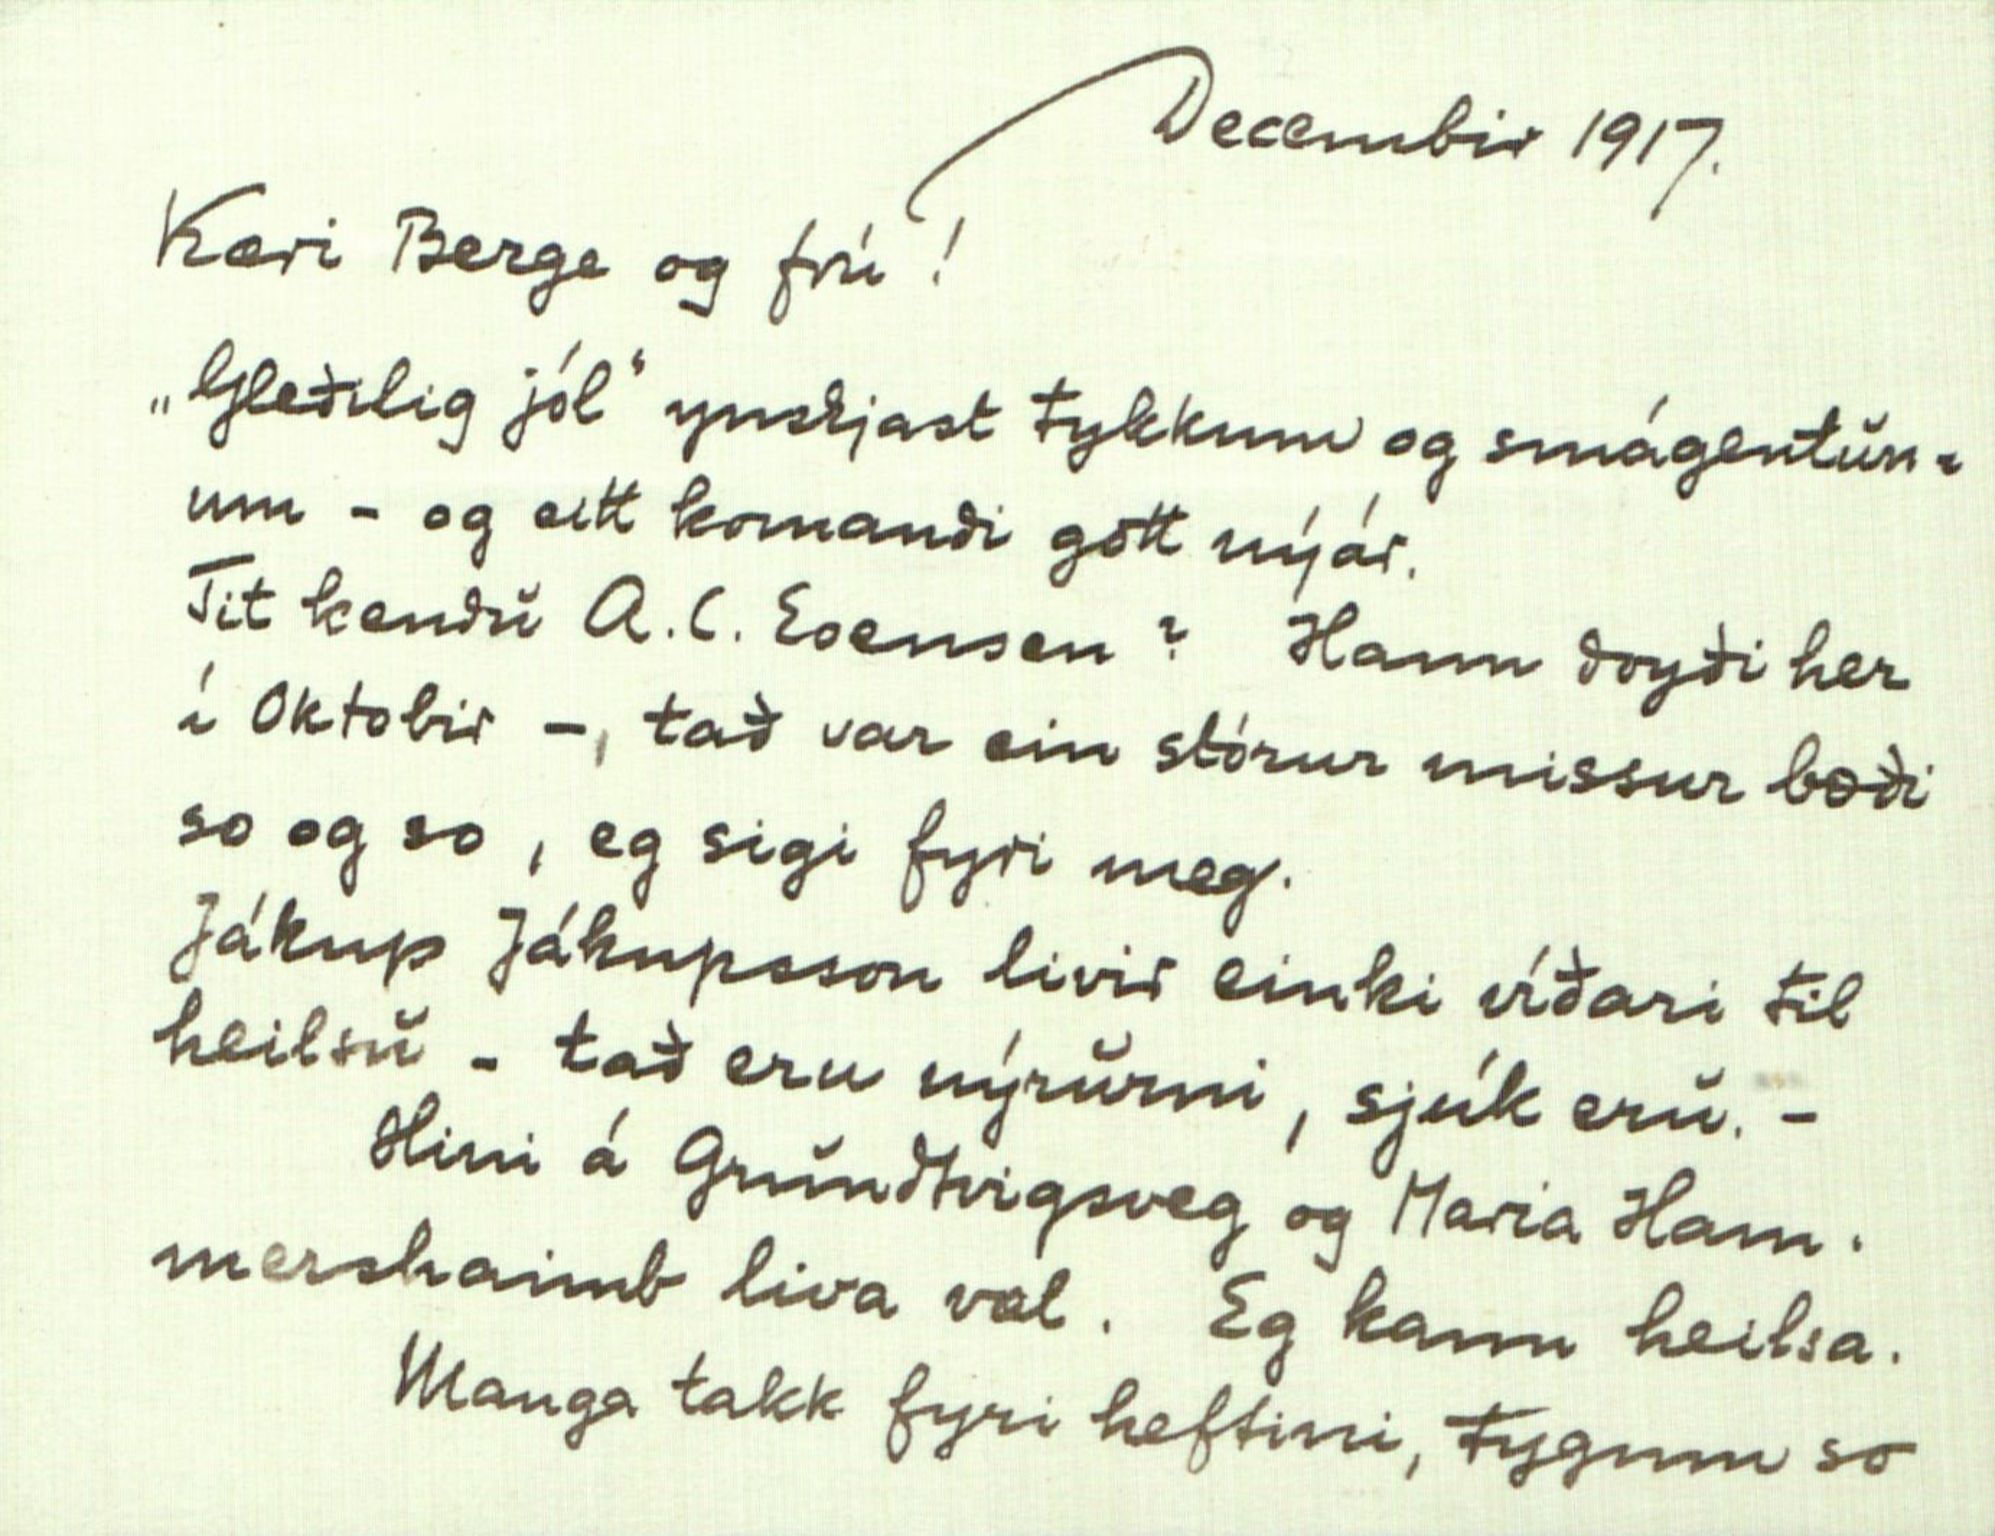 Decembir 1917.
Kæri Berge og frú!
„Gleðilig jól“ ynskjast tykkum og smágentun-
um - og eitt komandi gott nýár.
Tit kendu A. C. Evensen? Hann doyði her
í Oktobir -, tað var ein stórur missur bæði
so og so, eg sigi fyri meg.
Jákup Jákupsson livir einki víðari til
heilsu - tað eru nýrurni, sjúk eru. -
Hini á Grundtvigsveg og Maria Ham-
mershaimb liva væl. Eg kann heilsa.
Manga takk fyri heftini, tygum so